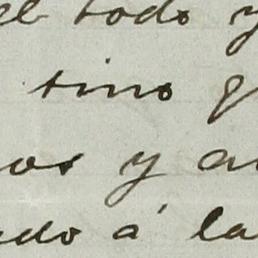 el todo y
sino q
os y a
do á la